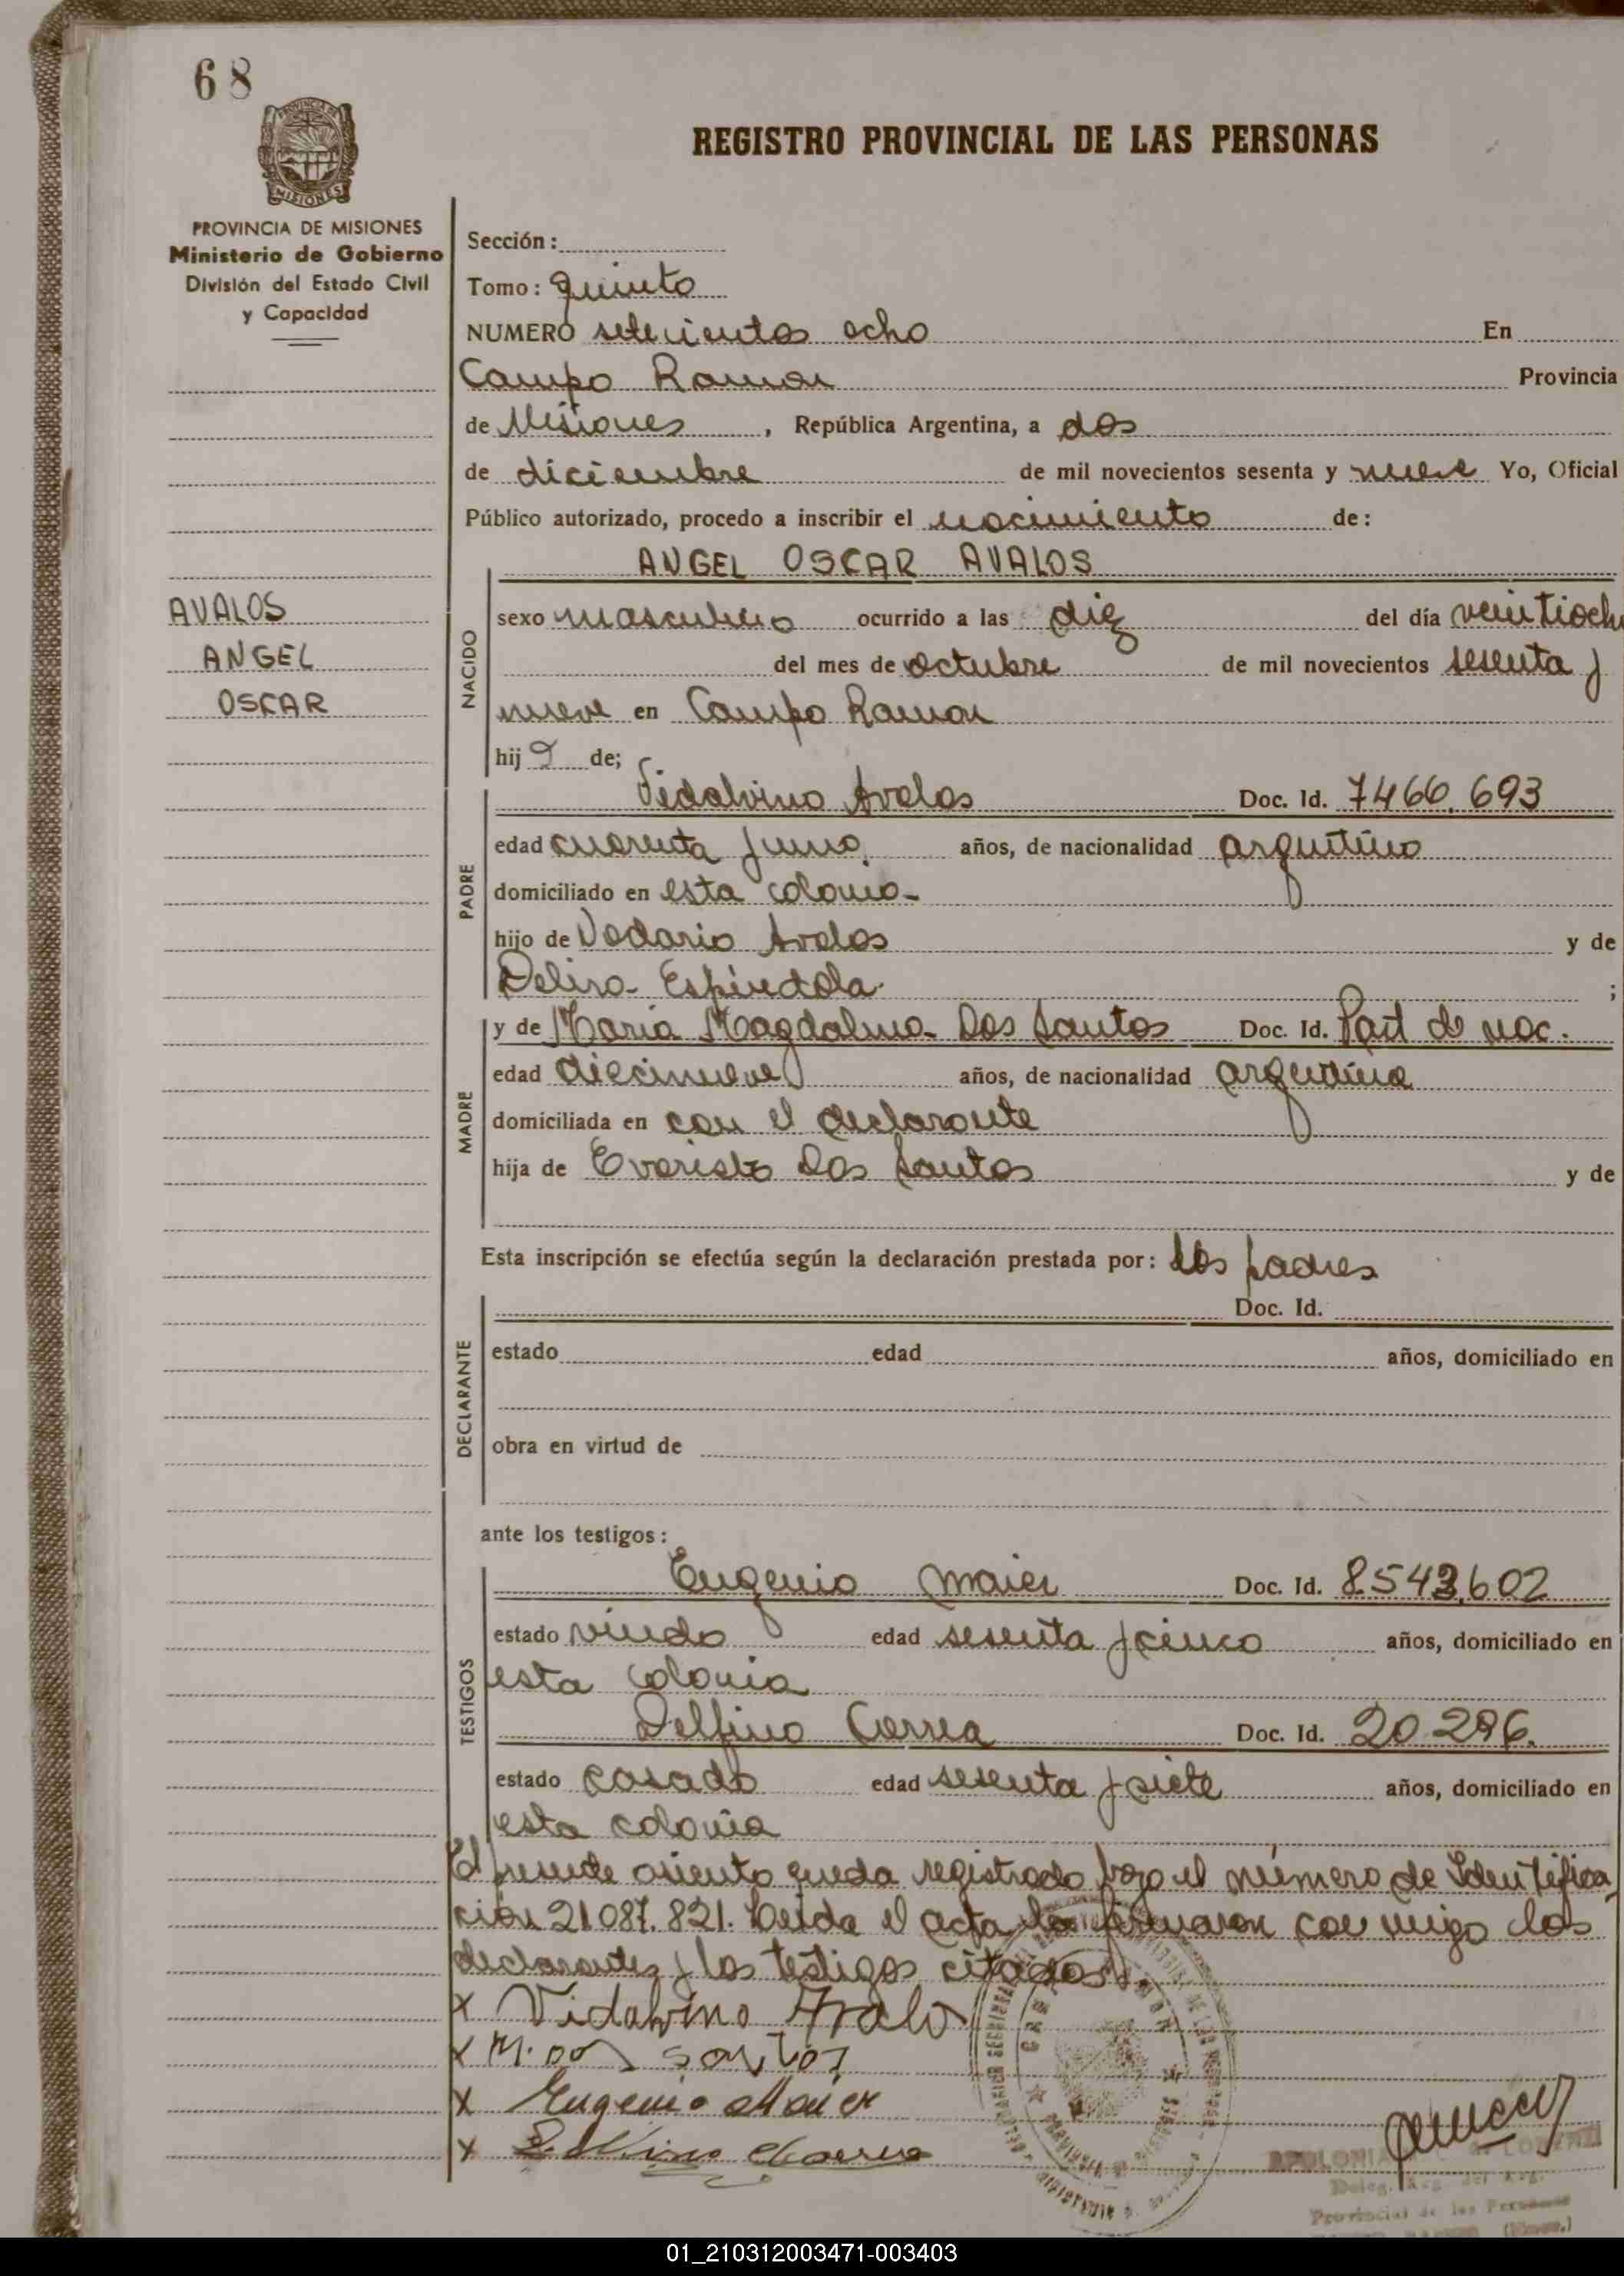 68
REGISTRO PROVINCIAL DE LAS PERSONAS
PROVINCIA DE MISIONES
Ministerio de Gobierno
División del Estado Civil
y Capacidad
Sección:
Tomo: quinto
NUMERO setecientos ocho En
Campo Ramon Provincia
de Misiones, República Argentina, a dos
de diciembre de mil novecientos sesenta y nueve Yo, Oficial
Público autorizado, procedo a inscribir el nacimiento de:
ANGEL OSCAR AVALOS
AVALOS
ANGEL
OSCAR
NACIDO
sexo masculino ocurrido a las diez del día veintioch
del mes de octubre de mil novecientos sesenta y
nueve en Campo Ramon
hijo de;
PADRE
Vidalvino Avalos Doc. Id. 7466.693
edad cuarenta y uno años, de nacionalidad argentino
domiciliado en esta colonia-
hijo de Avalos y de
Espindola ;
MADRE
y de Maria Magdalena Dos Santos Doc. Id. Part de nac.
edad diecinueve años, de nacionalidad argentina
domiciliada en con el declarante
hija de Evaristo Dos Santos y de
Esta inscripción se efectúa según la declaración prestada por: los padres
DECLARANTE
Doc. Id.
estado edad años, domiciliado en
obra en virtud de
ante los testigos:
TESTIGOS
Eugenio Maier Doc. Id. 8.543.602
estado viudo edad sesenta y cinco años, domiciliado en
esta colonia
Delfino Correa Doc. Id. 20.296.
estado casado edad sesenta y siete años, domiciliado en
esta colonia
El presente asiento queda registrado bajo el número de Identifica
ción 21.087.821. Leida el acta la firmaron con migo los
declarantes y los testigos citados.
x Vidalvino Avalos
x M. dos santos
x Eugenio Maier
x Delfino Correa
APOLONIA
Deleg. Reg. del
Provincial de las Personas
01_210312003471-003403